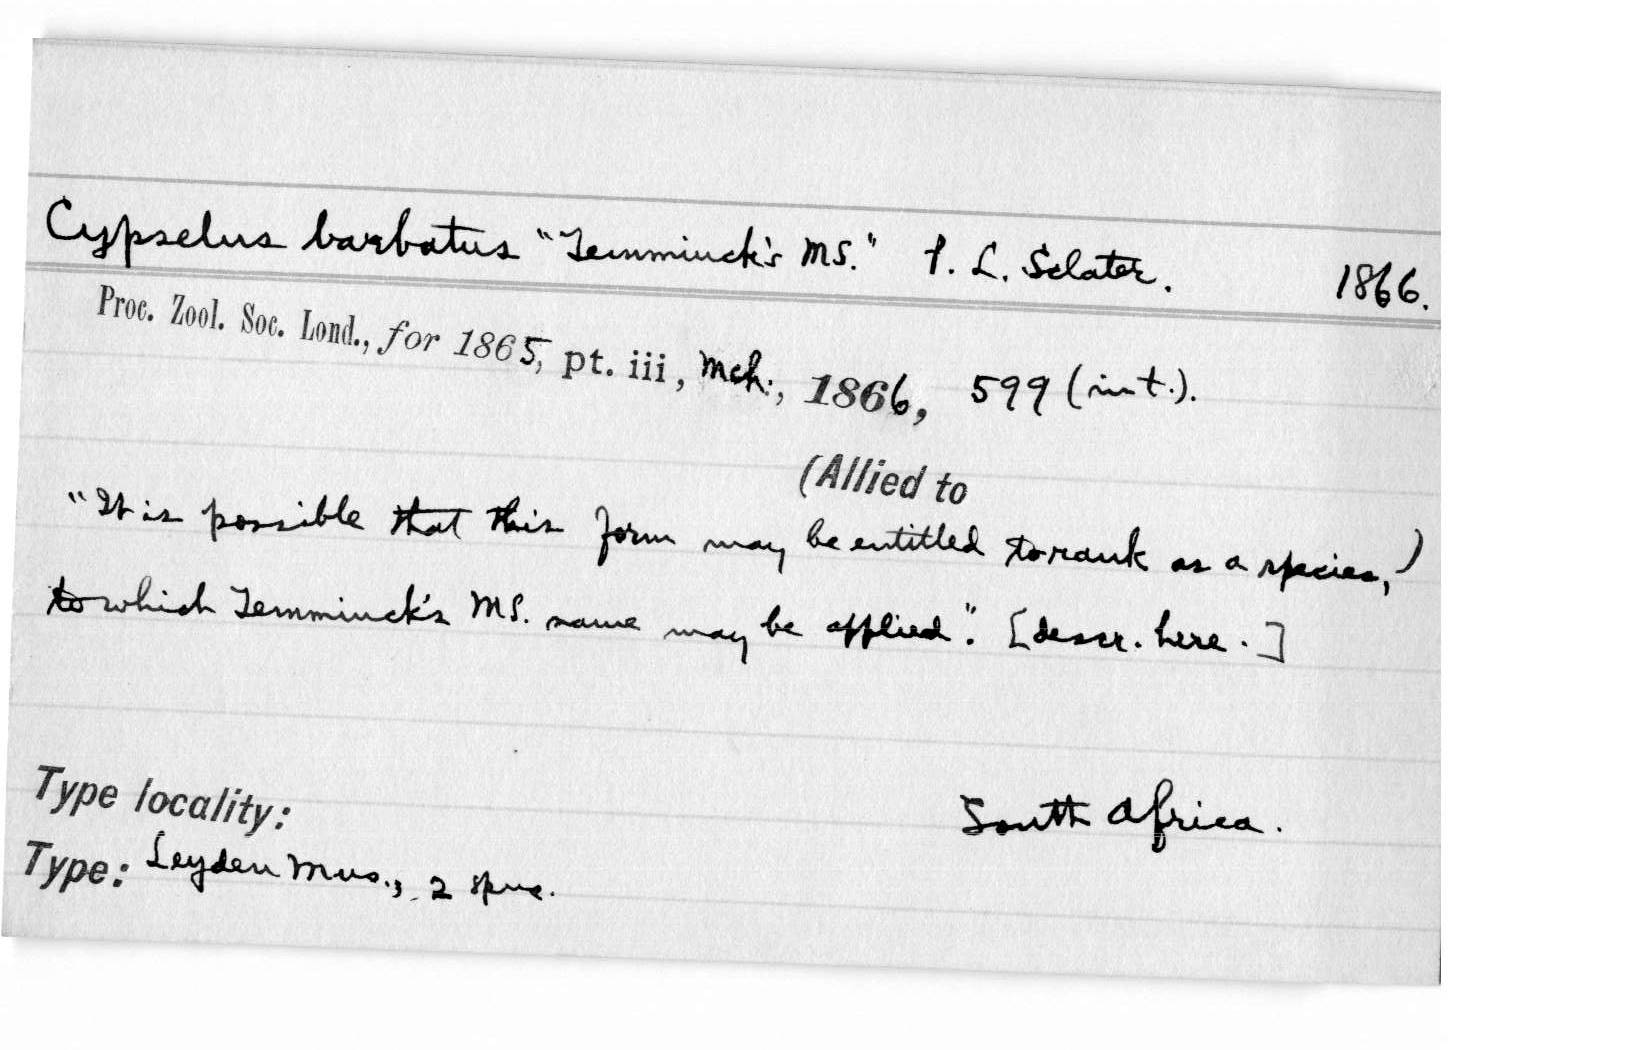 Cypselus barbatus "Temminck's MS." P. L. Sclater. 1866.
Proc. Zool. Soc. Lond., for 1865, pt. iii, Mch., 1866, 599 (int.).
(Allied to
"It is possible that this form may be entitled to rank as a species, )
to which Temminck's MS. name may be applied". [descr. here.]
Type locality: South Africa.
Type: Leyden Mus., 2 spec.